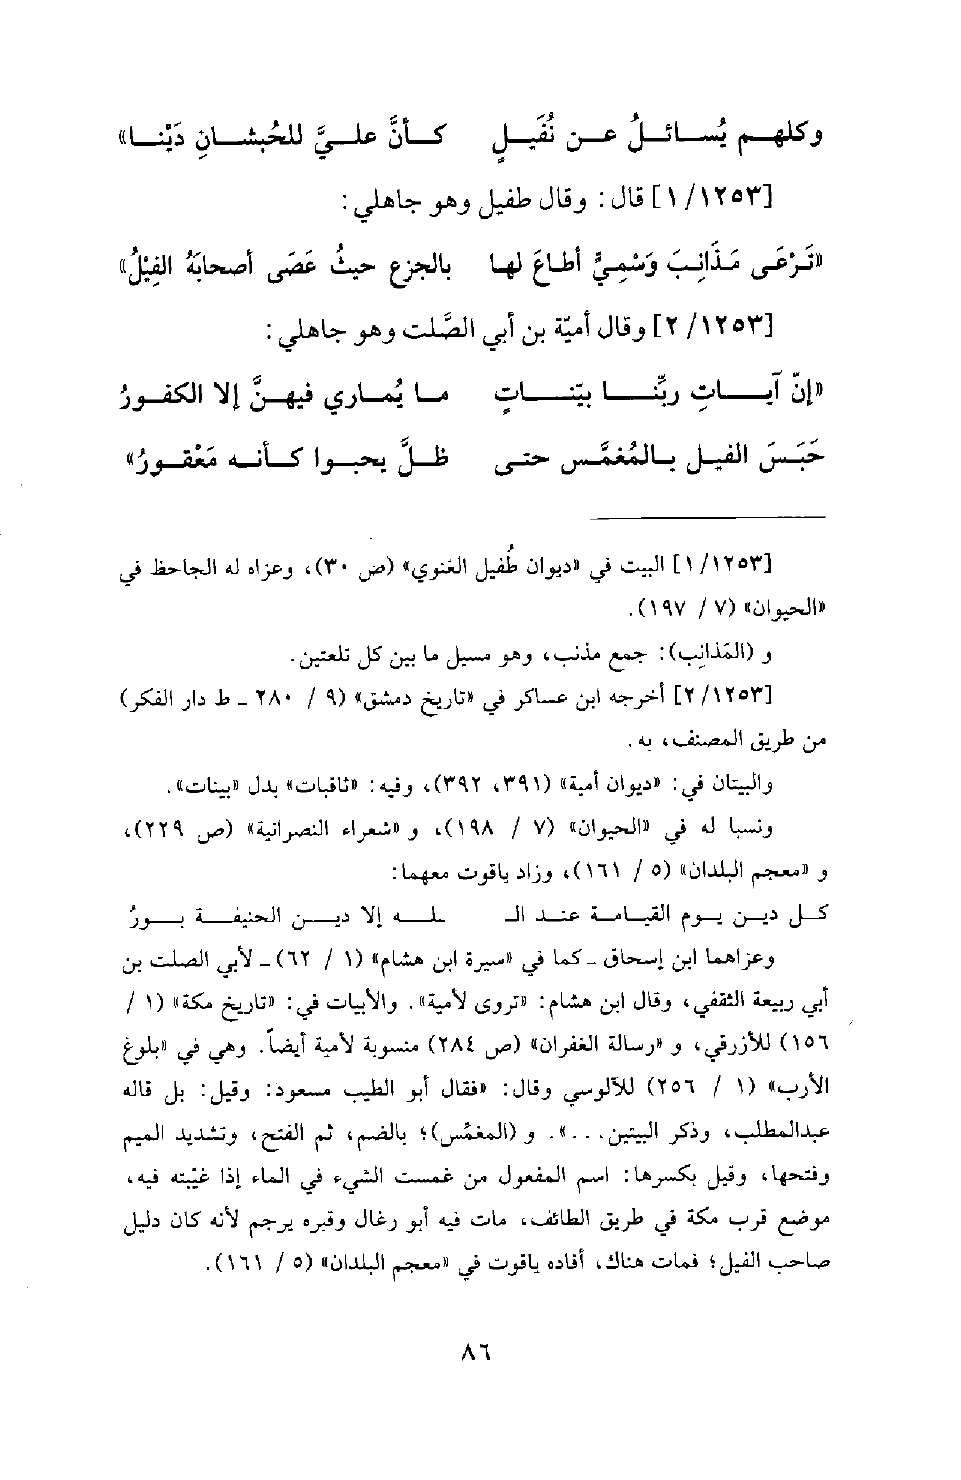 وكلهـم يُسـائـلُ عـن نُفَيـلٍ كـأنَّ علـيَّ للحُبشـانِ دَيْنـا»
[١/١٢٥٣] قال: وقال طفيل وهو جاهلي:
«تَـرْعَـى مَـذَانِـبَ وَسْمِـيٍّ أطـاعَ لهـا بالجزع حيثُ عَصَى أصحابَهُ الفِيْلُ»
[٢/١٢٥٣] وقال أميّة بن أبي الصَّلت وهو جاهلي:
«إنّ آيـاتِ ربِّنـا بيّنـاتٍ مـا يُمـاري فيهـنَّ إلا الكفـورُ
حَبَـسَ الفيـل بـالمُغمَّـس حتـى ظـلَّ يحبـوا كـأنـه مَعْقـورُ»
[١/١٢٥٣] البيت في «ديوان طُفيل الغنوي» (ص ٣٠)، وعزاه له الجاحظ في
«الحيوان» (٧ / ١٩٧).
و (المَذانِب): جمع مذنب، وهو مسيل ما بين كل تلعتين.
[٢/١٢٥٣] أخرجه ابن عساكر في «تاريخ دمشق» (٩ / ٢٨٠ ـ ط دار الفكر)
من طريق المصنف، به.
والبيتان في: «ديوان أمية» (٣٩١، ٣٩٢)، وفيه: «ثاقبات» بدل «بينات».
ونسبا له في «الحيوان» (٧ / ١٩٨)، و «شعراء النصرانية» (ص ٢٢٩)،
و «معجم البلدان» (٥ / ١٦١)، وزاد ياقوت معهما:
كـل ديـن يـوم القيـامـة عنـد الـ ـلـه إلا ديـن الحنيفـة بـورُ
وعزاهما ابن إسحاق ـ كما في «سيرة ابن هشام» (١ / ٦٢) ـ لأبي الصلت بن
أبي ربيعة الثقفي، وقال ابن هشام: «تروى لأمية». والأبيات في: «تاريخ مكة» (١ /
١٥٦) للأزرقي، و «رسالة الغفران» (ص ٢٨٤) منسوبة لأمية أيضاً. وهي في «بلوغ
الأرب» (١ / ٢٥٦) للآلوسي وقال: «فقال أبو الطيب مسعود: وقيل: بل قاله
عبدالمطلب، وذكر البيتين...». و (المغمَّس)؛ بالضم، ثم الفتح، وتشديد الميم
وفتحها، وقيل بكسرها: اسم المفعول من غمست الشيء في الماء إذا غيّبته فيه،
موضع قرب مكة في طريق الطائف، مات فيه أبو رغال وقبره يرجم لأنه كان دليل
صاحب الفيل؛ فمات هناك، أفاده ياقوت في «معجم البلدان» (٥ / ١٦١).
٨٦